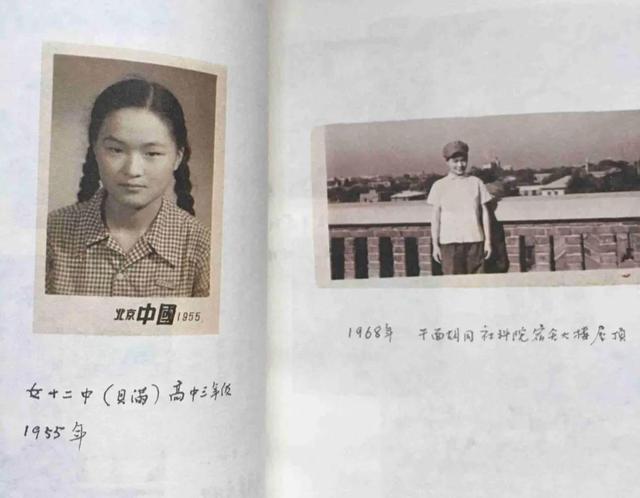 北京中國1955
女十二中(贝满)高中三年级
1955年
1968年 干面胡同 社科院宿舍大楼屋顶